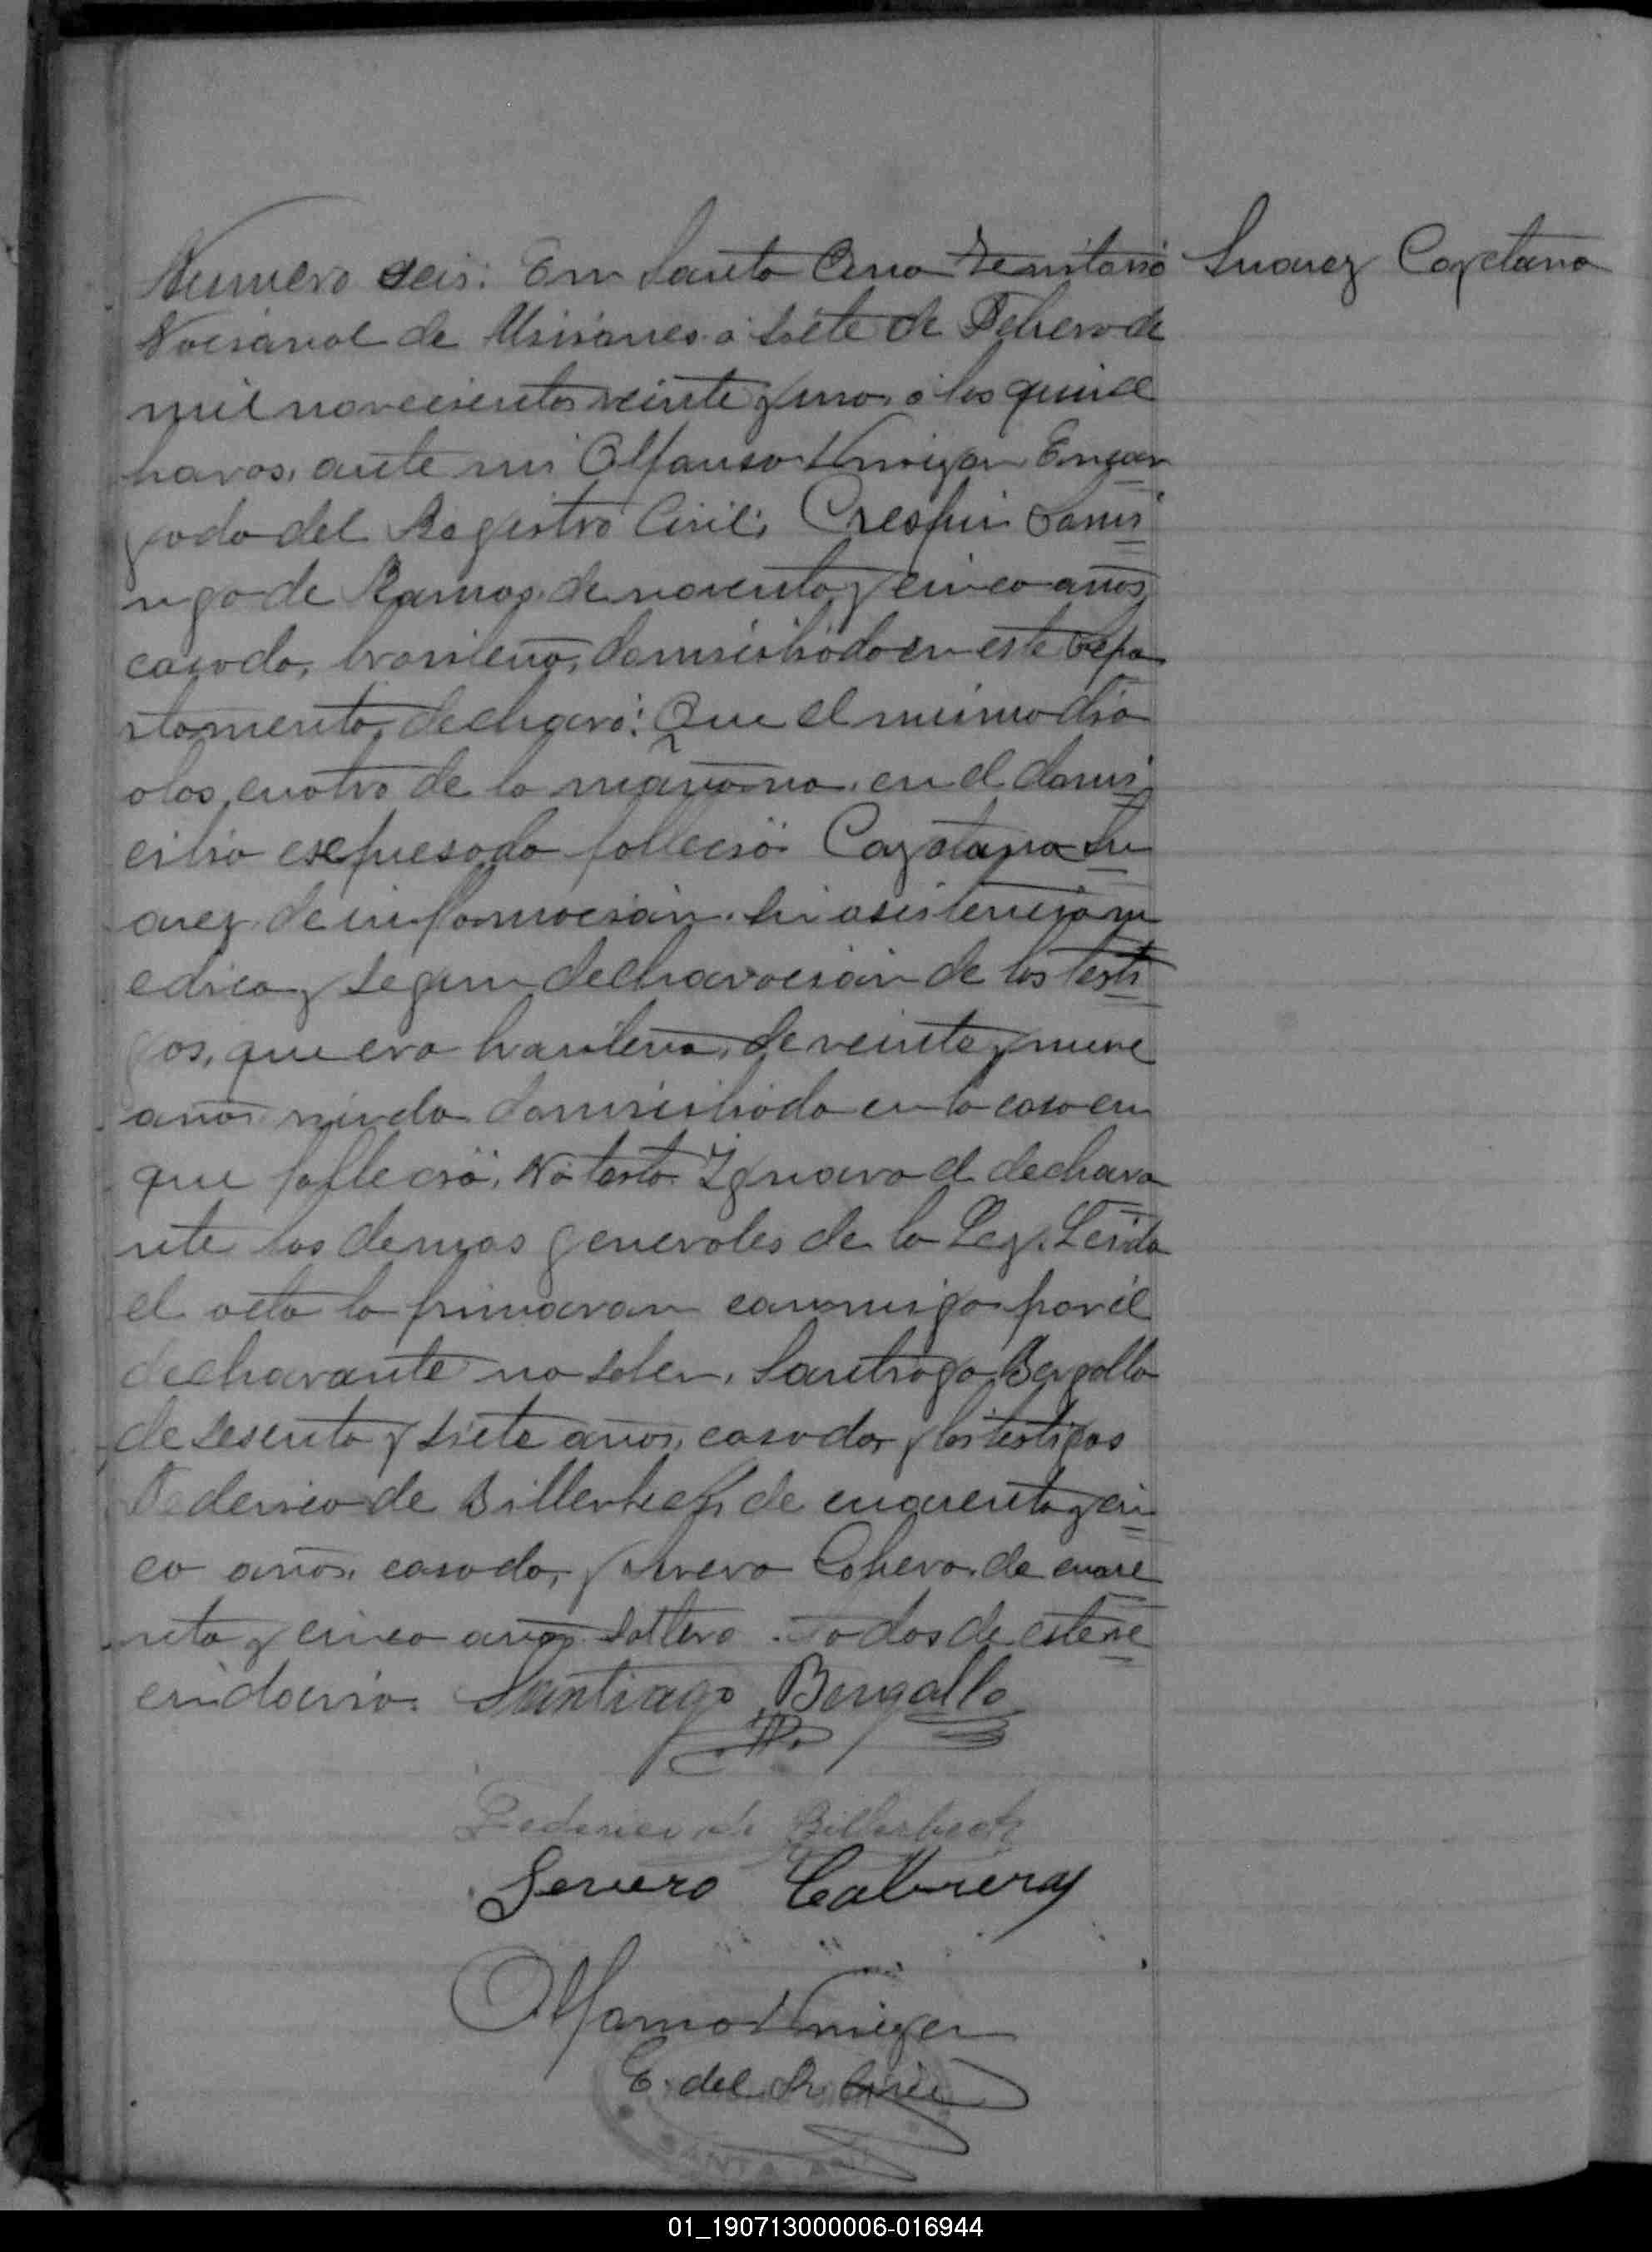 Numero seis: En Santa Ana Territorio
Suarez Cayetana
Nacional de Misiones á siete de Febrero de
mil novecientos veinte y uno á las quince
horas, ante mi Alfonso Encar
gado del Registro Civil; Crespin Domi
ngo de Ramos, de noventa y cinco años,
casado, brasileño, domiciliado en este Depa
rtamento, declaró: Que el mismo dia
a las cuatro de la mañana, en el domi
cilio expresado falleció Cayetana Su
arez de inflamacion. sin asistencia m
edica y segun declaracion de los testi
gos, que era brasileña, de veinte y nueve
años viuda domiciliada en la casa en
que falleció. No testó. Ignora el declara
nte las demas generales de la Ley. Leida
el acta la firmaran conmigo por el
declarante no saber, Santiago Bergallo
de sesenta y siete años, casado, y los testigos
Federico de Billerbeck de cuarenta y cin
co años, casado, y Severo Cabrera de cuare
nta y cinco años soltero. Todos de este ve
cindario. Santiago Bergallo
Federico de Billerbeck
Severo Cabrera
Alfonso
E. del R. Civil
SANTA A
01_190713000006-016944